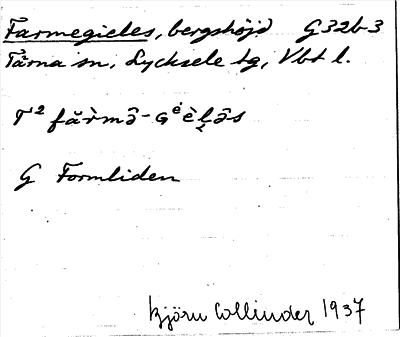 Farmegieles, bergshöjd G32b3
Tärna sn, Lycksele lg, Vbt l.
T² fǎ̀rmə̑-Gėèl̥ə̑s
G Formliden
Björn Collinder 1937